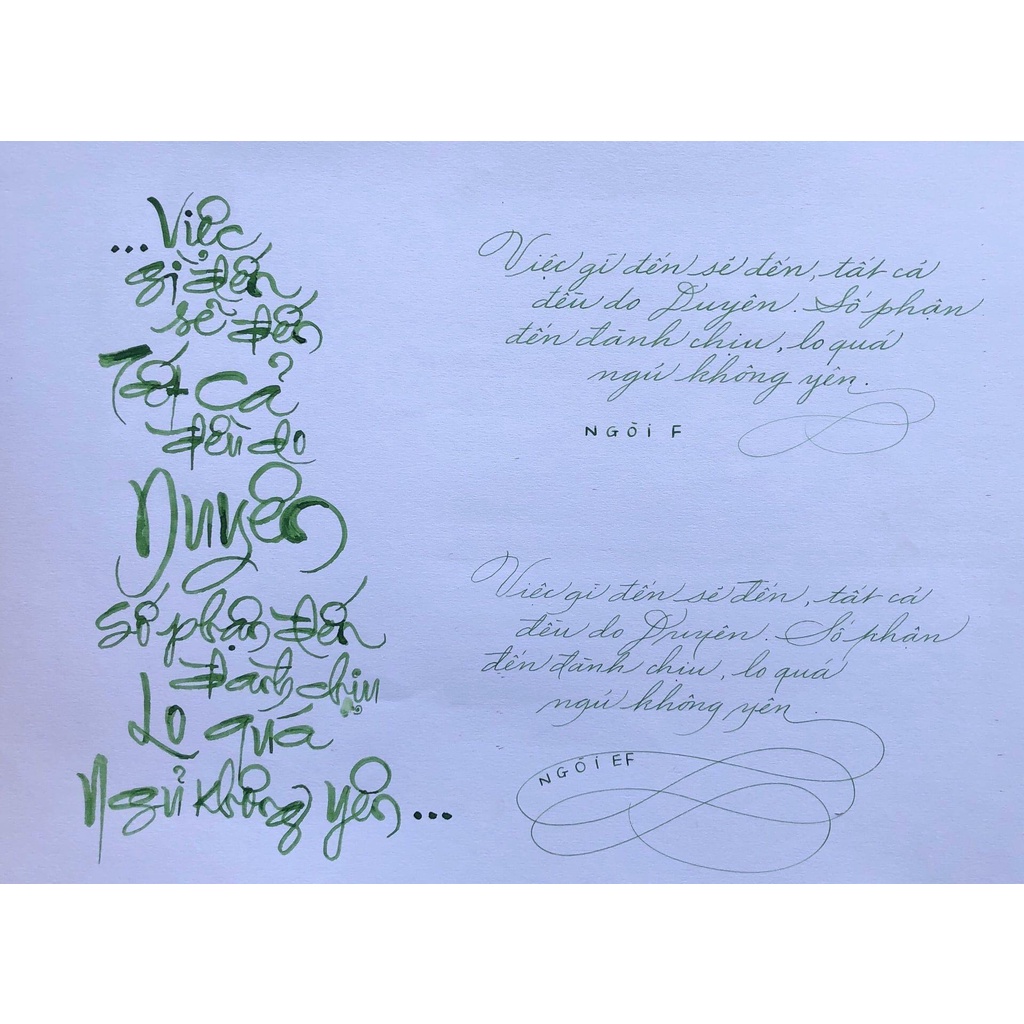 ...Việc
gì đến
sẽ đến
Tất cả
đều do
Duyên
Số phận đến
Đành chịu
Lo quá
Ngủ không yên...
Việc gì đến sẽ đến, tất cả
đều do Duyên. Số phận
đến đành chịu, lo quá
ngủ không yên.
NGÒI F
Việc gì đến sẽ đến, tất cả
đều do Duyên. Số phận
đến đành chịu, lo quá
ngủ không yên
NGÒI EF